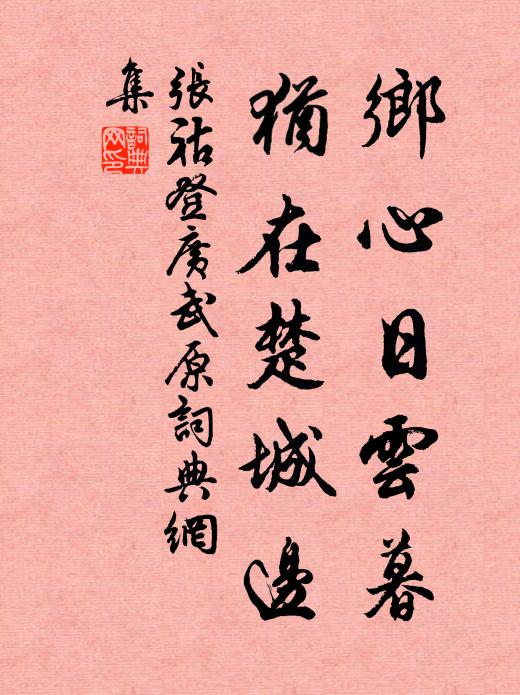 鄉心日雲暮
猶在楚城邊
張祜登廣武原詞典網
集
詞典網印